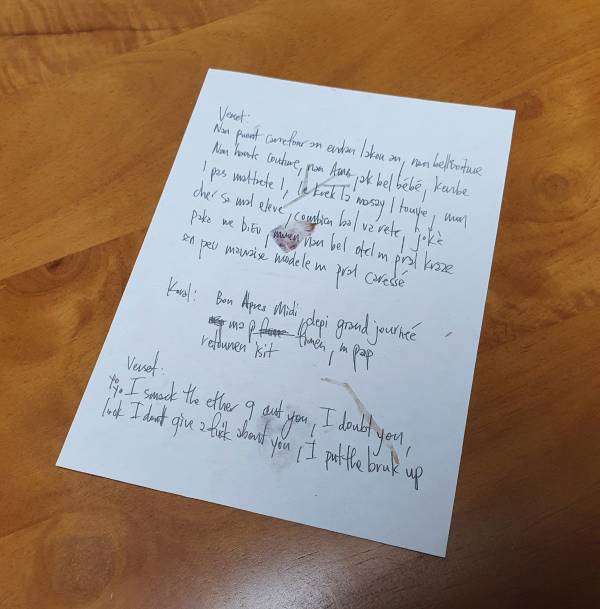 Verset:
Nan point carrefour an endan lakou an, nan bell voiture
Nan haute couture, nan Ama jak bel bébé, kenbe
I pas maltrete l, le kock la massay l touye, mwen
cher sa mal eleve, combien bal va rete, jokè
poko we Dieu, mwen nan bel otel m pral kraze
en peu mauvaise modele m pral caressé
Koral: Bon Apres Midi, depi grand journée
ma p fimen, m pap
retounen isit
Verset:
Yo Yo I smack the ether 9 out you, I doubt you,
luck I don't give a fuck about you, I put the bruk up